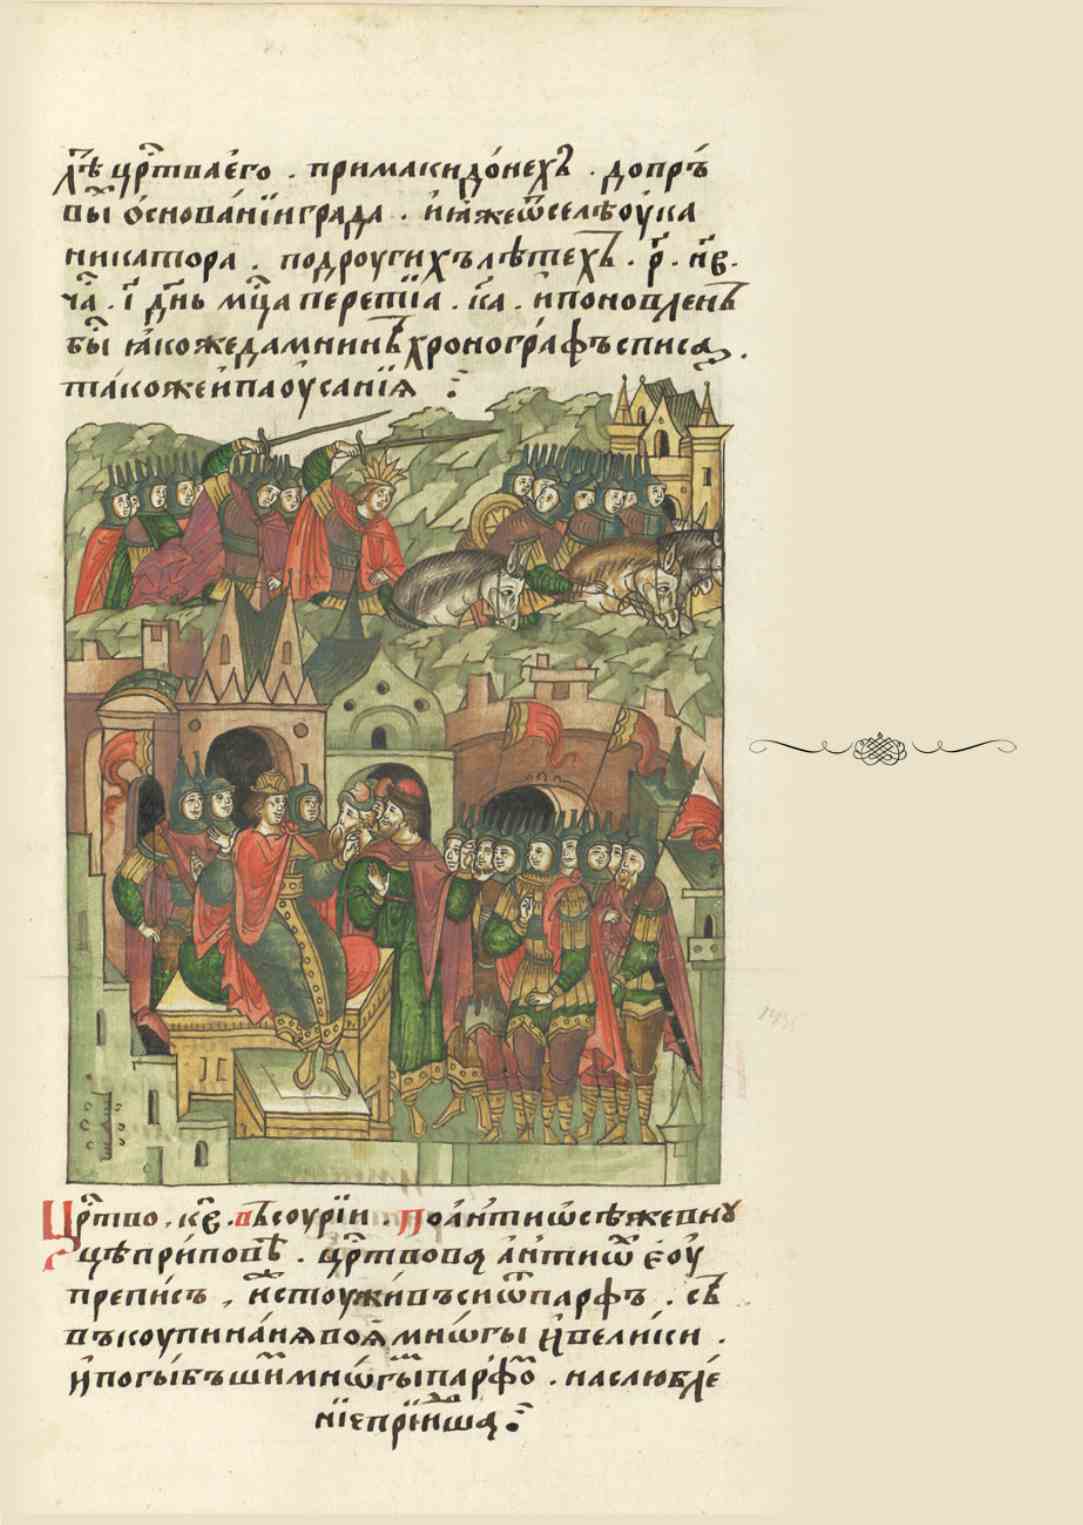 лѣ црⷭ҇тваего . примакидо́нехъ . допръ́
вы́ ѻ҆снова́нїиграда . и҆ꙗ҆́жеѿселѣоу́ка
никатора . подроугихълѣтехъ . р҃ . н҃в .
ча . і҃ днь мцⷭ҇а перетїа . к҃а . и҆поновленъ
бы́ ꙗ҆́когжедамнинъхроногра́фъсписа .
та́коженпаоу́санїѧ ⁘
Црⷭ҇тво . к҃в . въсоурїи . Поа҆нтиѡсѣжевну
цѣпри́повѣ . црⷭ҇твова а҆нтиѡ є҆оу҆
препи́съ , и҆стоужи́въсиѿпарфъ . съ
въкоупина́нꙗвоꙗ҆ мнѡ́гы и҆вели́ки .
и҆погы́бъшимнѡ́гы́парфо . наслюбле́
нїепрїи́ша ⁘